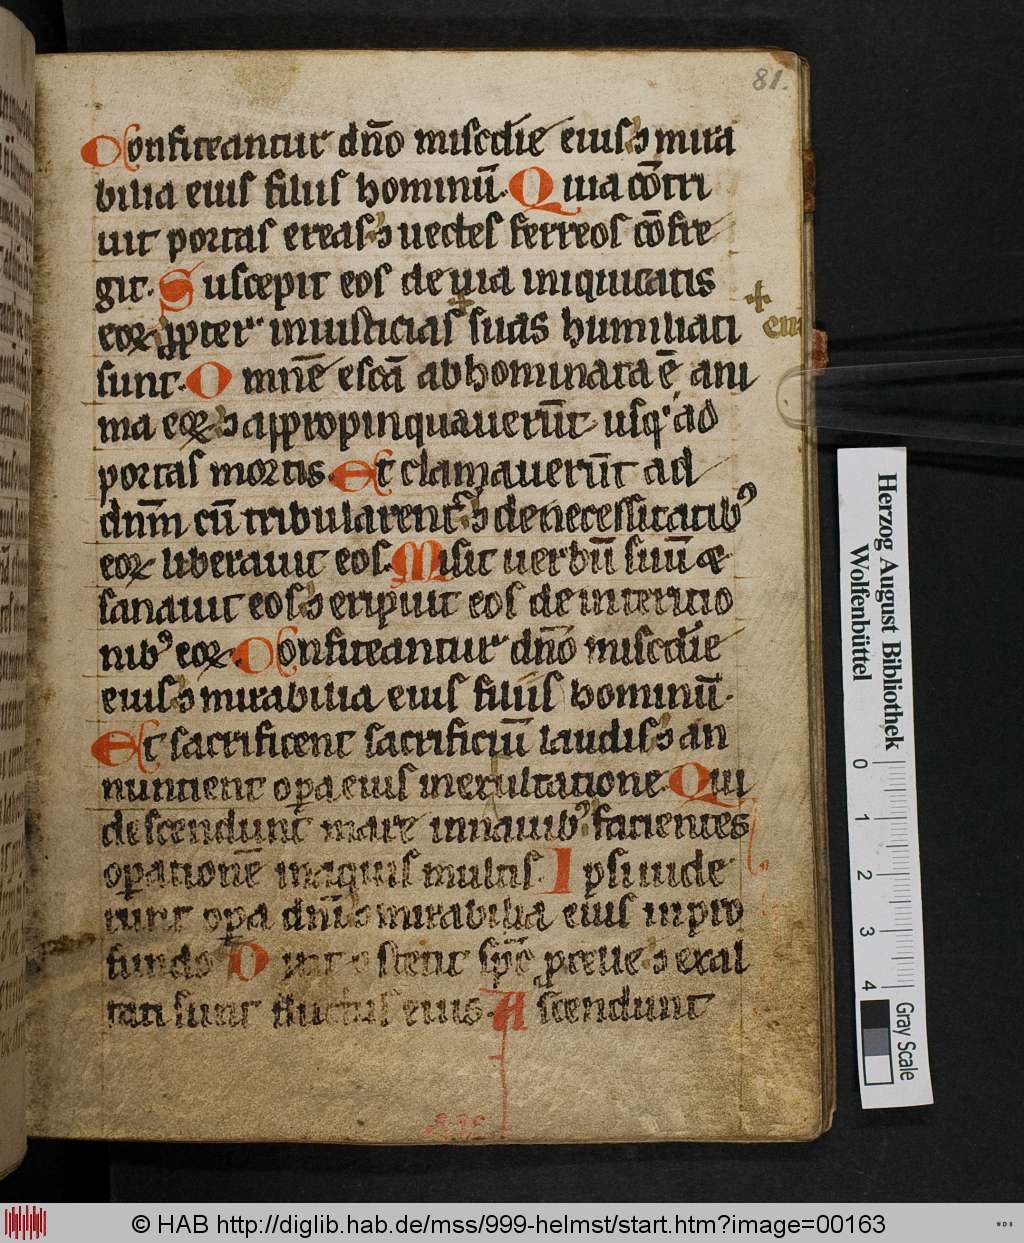 81.
Confiteantur dn̄o misc̄die eius ⁊ mira
bilia eius filiis hominū. Quia cōtri
uit portas ereas ⁊ uectes ferreos cōfre
git. Suscepit eos de uia iniquitatis
eoꝝ ꝓpter iniusticias suas humiliati
sunt. Omnē escā abhominata ē ani
ma eoꝝ ⁊ appropinquauerūt usqꝫ ad
portas mortis. Et clamauerūt ad
dnm̄ cū tribularent᷑ ⁊ de necessitatibꝰ
eoꝝ liberauit eos. Misit uerbū suū ⁊
sanauit eos ⁊ eripuit eos de interitio
nibꝰ eoꝝ. Confiteantur dn̄o misc̄die
eius ⁊ mirabilia eius filiis hominū.
Et sacrificent sacrificiū laudis ⁊ an
nuntient oꝑa eius in exultatione. Qui
descendunt mare in nauibꝰ facientes
oꝑationē in aquis multis. Ipsi uide
runt oꝑa dn̄i ⁊ mirabilia eius in pro
fundo. Dixit ⁊ stetit sp̄c ꝓcelle ⁊ exal
tati sunt fluctus eius. Ascendunt
Herzog August Bibliothek
Wolfenbüttel
0 1 2 3 4
Gray Scale
© HAB http://diglib.hab.de/mss/999-helmst/start.htm?image=00163